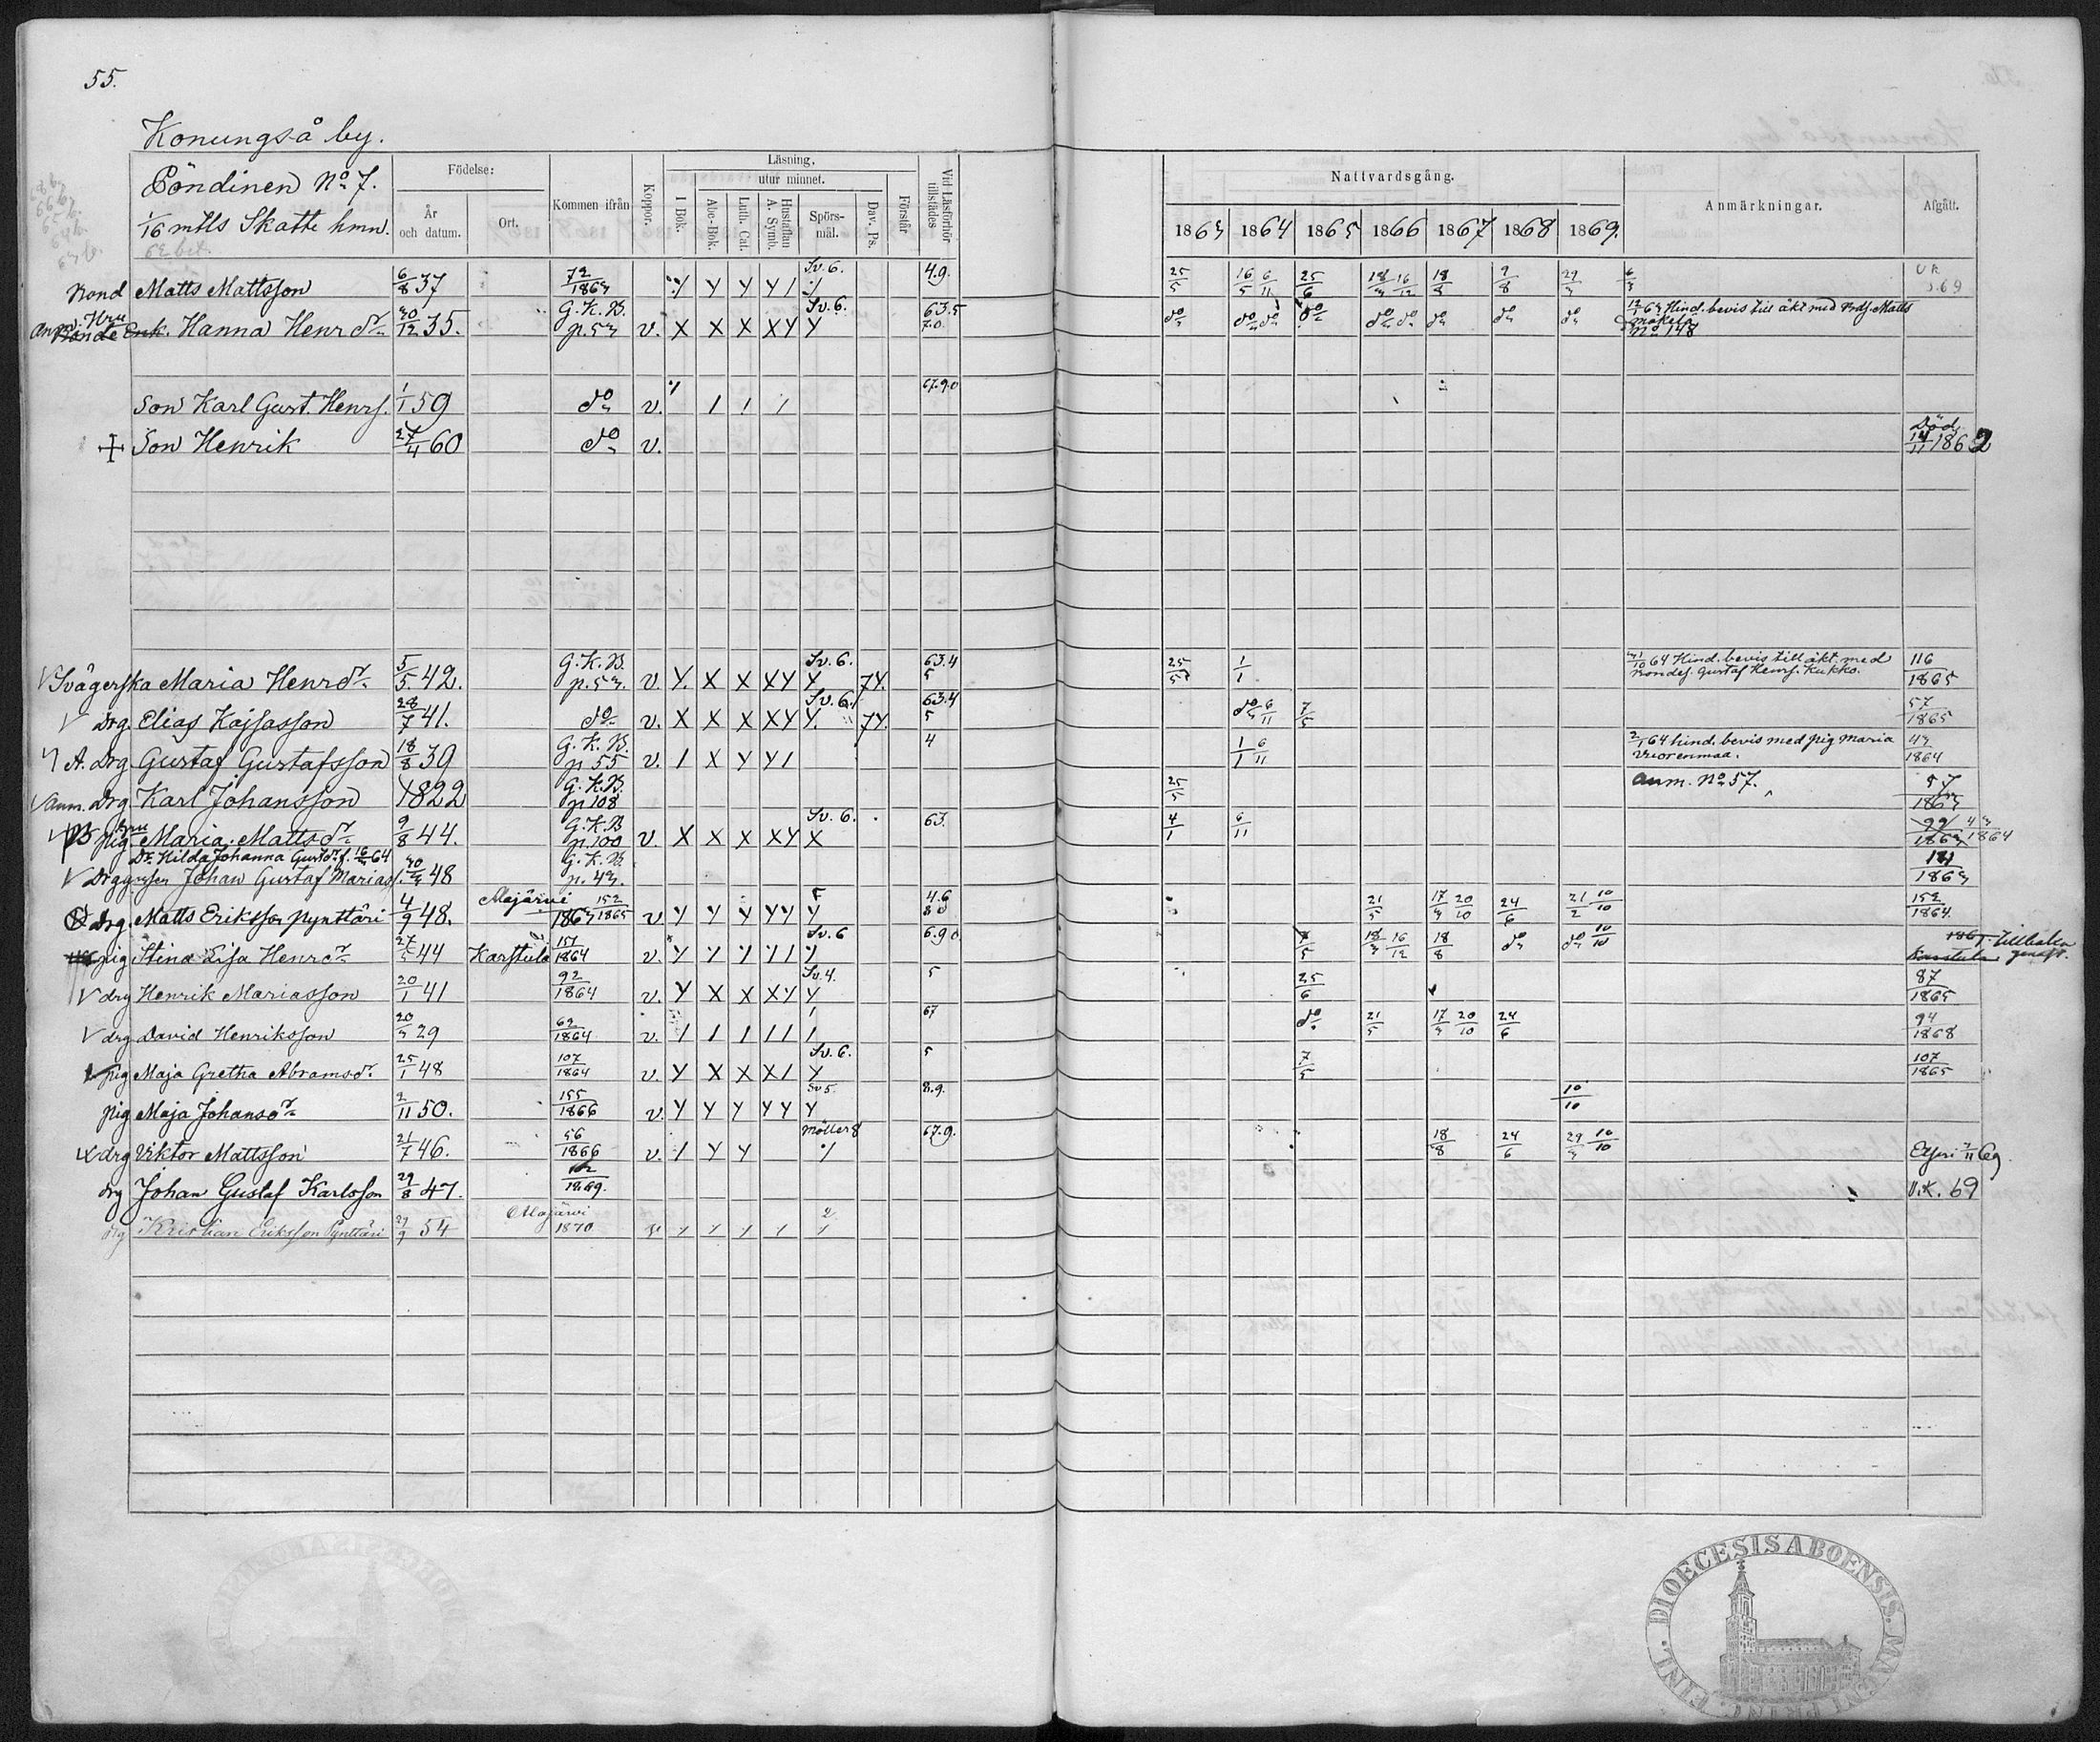 55.
Konungså by.
Pöndinen No 7.
1/16 mtls Skatte hmn.
Födelse:
År och datum.
Ort.
Kommen ifrån
Koppor.
Läsning,
utur minnet.
I Bok.
Abc-Bok.
Luth. Cat.
Hustaflan A. Symb.
Spörs-mål.
Dav. Ps.
Förstår
Vid Läsförhör tillstädes
Nattvardsgång.
1863 1864 1865 1866 1867 1868 1869.
Anmärkningar.
Afgått.
Bond Matts Mattsson 6/8 37 72/1863 Sv. 6. 4.9. 25/5 16/5 6/11 25/6 18/3 16/12 18/8 9/8 29/3
Hru Enk. Hanna Henrdr 30/12 35. G. K. B. p. 53 v. X X X X Y Y Sv. 6. 63.5 7.0. do do do do do do do do do 12/1 63 Hind. bevis till äkt med Bdf. Matts Makela No 148
Son Karl Gust. Henrs. 1/1 59 do v. / / / 67.9.0
+ Son Henrik 27/4 60 do v. Död 14/11 1862
V Svägerska Maria Henrdr 5/5 42. G. K. B. p. 53. v. Y. X X X Y Y Sv. 6. 7Y. 63.4 5 25/5 1/1 64 Hind. bevis till äkt. med Bondes. Gustaf Henrs. Kukko. 116/1865
V drg. Elias Kajsasson 28/7 41. do v. X X X X Y Y. Sv. 6. 7Y. 63.4 5 do 6/11 7/5 57/1865
A. drg Gustaf Gustafsson 18/8 39 G. K. B. p 55 v. / X Y Y / 4 1/1 6/11 2/1 64 hind. bevis med pig Maria Vuorenmaa. 43/1864
V anm. drg Karl Johansson 1822 G. K. B. p 108 25/5 anm. No 57. 57/1863
pig hru Maria Mattsdr 9/8 44. G. K. B p. 100 v. X X X X Y X Sv. 6. 63. 4/1 6/11 99/1863 43/1864
Dr. Hilda Johanna Gustdr f. 16/3 64
V Drggossen Johan Gustaf Marias. 30/3 48 G. K. B. p. 43. 181/1863
drg. Matts Eriksson Pynttäri 4/9 48. Alajärvi 1863 152/1865 v Y Y Y Y Y Y 4.6 8 0 21/5 17/3 20/10 24/6 21/2 10/10 152/1864
pig Stina Lisa Henrdr 27/5 44 Karstula 151/1864 v. Y Y Y / / Y Sv. 6 6.9 0 7/5 18/3 16/12 18/8 do do 10/10 Karstula tillbaka
V drg Henrik Mariasson 20/1 41 92/1864 v. Y X X X Y Y Sv. 4. 5 25/6 87/1865
V drg David Henriksson 20/3 29 62/1864 v. / / / / / / 67 do 21/5 17/3 20/10 24/6 94/1868
V pig Maja Gretha Abramsdr 25/1 48 107/1864 v. Y X X X / Y Sv. 6. 5 7/5 107/1865
pig Maja Johansdr 2/11 50. 155/1866 v. Y Y Y Y Y Y Sv 5. 8.9. 10/10
drg Viktor Mattsson 21/7 46. 56/1866 v. / Y Y Möller 8 67.9. 18/8 24/6 29/3 10/10
drg Johan Gustaf Karlsson 29/8 47. 1869. U.K. 69
drg Kristian Eriksson Pynttäri 29/9 54 Alajärvi 1870
FINL. DIOECESIS ABOENSIS. MAGNI